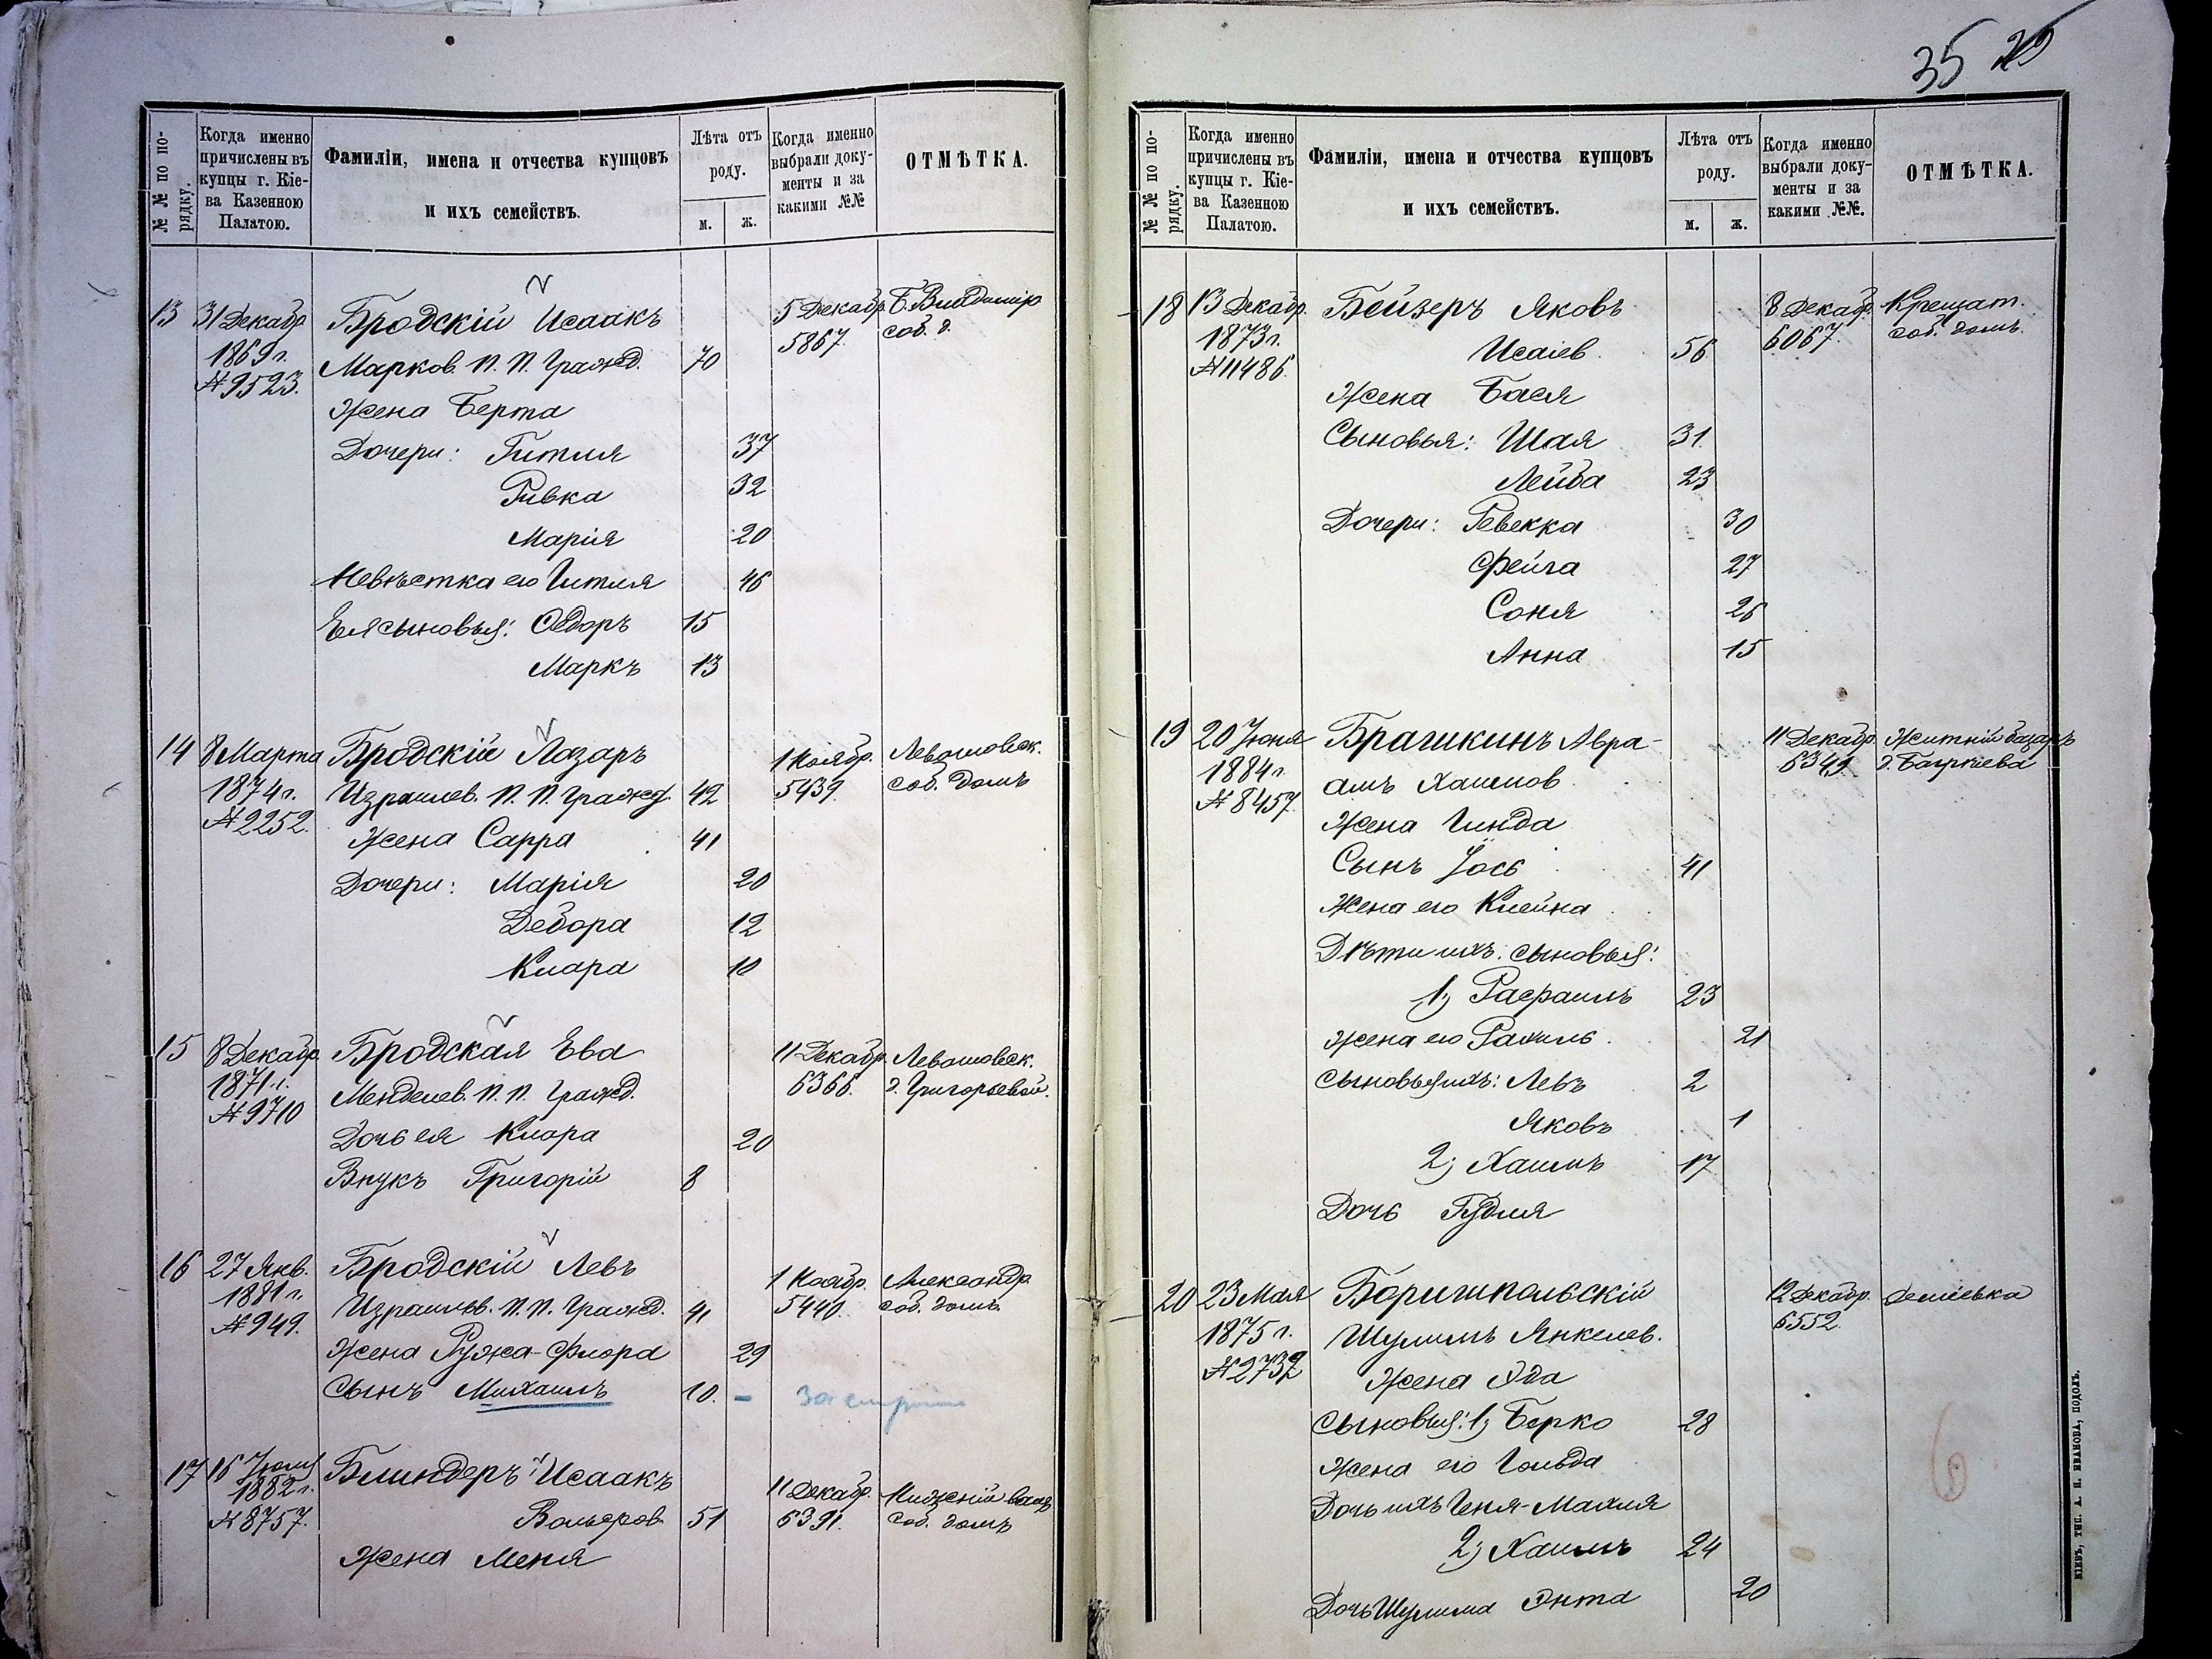 35 25
№ № по по-
рядку.
Когда именно
причислены въ
купцы г. Кіе-
ва Казенною
Палатою.
Фамиліи, имена и отчества купцовъ
и ихъ семействъ.
Лѣта отъ
роду.
м. ж.
Когда именно
выбрали доку-
менты и за
какими №№
ОТМѢТКА.
13 31 Декабр. Бродскій Исаакъ 5 Декабр. Б. Владимір
1869 г. Марков. П. П. Гражд. 70 5867. соб. д.
№ 9523. Жена Берта
Дочери: Гитля 37
Ривка 32
Марія 20
Невѣстка его Гитля 46
Ея сыновья: Ѳедоръ 15
Маркъ 13
14 8 Марта Бродскій Лазарь 1 Ноябр. Левашовск.
1874 г. Израилев. П. П. Гражд. 42 5439. соб. домъ
№ 2252. Жена Сарра 41
Дочери: Марія 20
Дебора 12
Клара 10
15 8 Декабр. Бродская Ева 11 Декабр. Левашовск.
1871 г. Менделев. П. П. Гражд. 6366. д. Григорьевой.
№ 9710 Дочь ея Клара 20
Внукъ Григорій 8
16 27 Янв. Бродскій Левъ 1 Ноябр. Александр.
1881 г. Израилев. П. П. Гражд. 41 5440. соб. домъ
№ 949. Жена Ружа-Флора 29
Сынъ Михаилъ 10. –
17 16 Іюля Блиндеръ Исаакъ 11 Декабр.
1882 г. Вольфров. 51 6391. соб. домъ
№ 8757. Жена Меня
№ № по по-
рядку.
Когда именно
причислены въ
купцы г. Кіе-
ва Казенною
Палатою.
Фамиліи, имена и отчества купцовъ
и ихъ семействъ.
Лѣта отъ
роду.
м. ж.
Когда именно
выбрали доку-
менты и за
какими №№.
ОТМѢТКА.
18 13 Декабр. Бейзеръ Яковъ 8 Декабр. Крещат.
1873 г. Исаіев. 56 6067. соб. домъ.
№ 11486. Жена Бася
Сыновья: Шая 31.
Лейба 23
Дочери: Ревекка 30
Фейга 27
Соня 26
Анна 15
19 20 Іюня Брагинкинъ Авра- 11 Декабр. Житній базаръ
1884 г. амъ Хаимов. 6349.
№ 8457. Жена Гинда
Сынъ Іось 41
Жена его Клейна
Дѣти ихъ: сыновья:
1, Рафаилъ 23
жена его Рахиль. 21
сыновья ихъ: Левъ 2
Яковъ 1
2, Хаимъ 17
Дочь Гудля
20 23 Мая Боришпольскій 12 Декабр. Деміевка
1875 г. Шулимъ Янкелев. 6552.
№ 2732 Жена Эда
Сыновья: 1, Берко 28
Жена его Гольда
Дочь ихъ Геня-Махля
2, Хаимъ 24
Дочь Шулима Энта 20
6
КІЕВЪ, ТИП. А. Н. ИВАНОВА, ПОДОЛЪ.